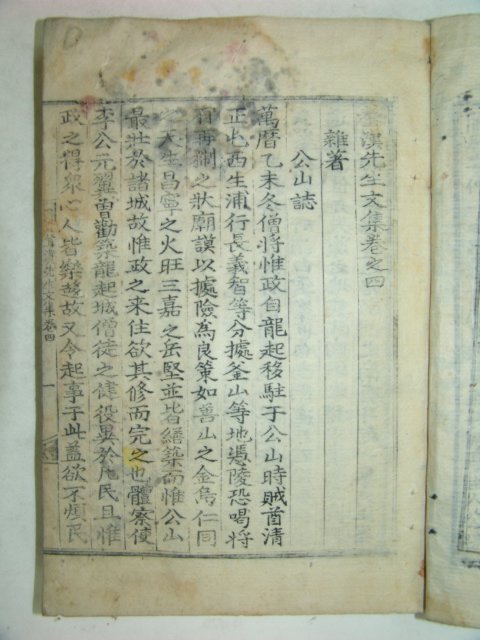 溪先生文集卷之四
雜著
公山誌
萬曆乙未冬僧將惟政自龍起移駐于公山時賊酋清
正屯西生浦行長義智等分據釜山等地憑陵恐喝將
有再猘之狀廟謨以據險爲良策如善山之金烏仁同
之天生昌寧之火旺三嘉之岳堅並皆繕築而惟公山
最壯於諸城故惟政之來住欲其修而完之也體察使
李公元翼曾勸築龍起城僧徒之健役異於凡民且惟
政之得衆心人皆樂趨故又令起事于此盖欲不煩民